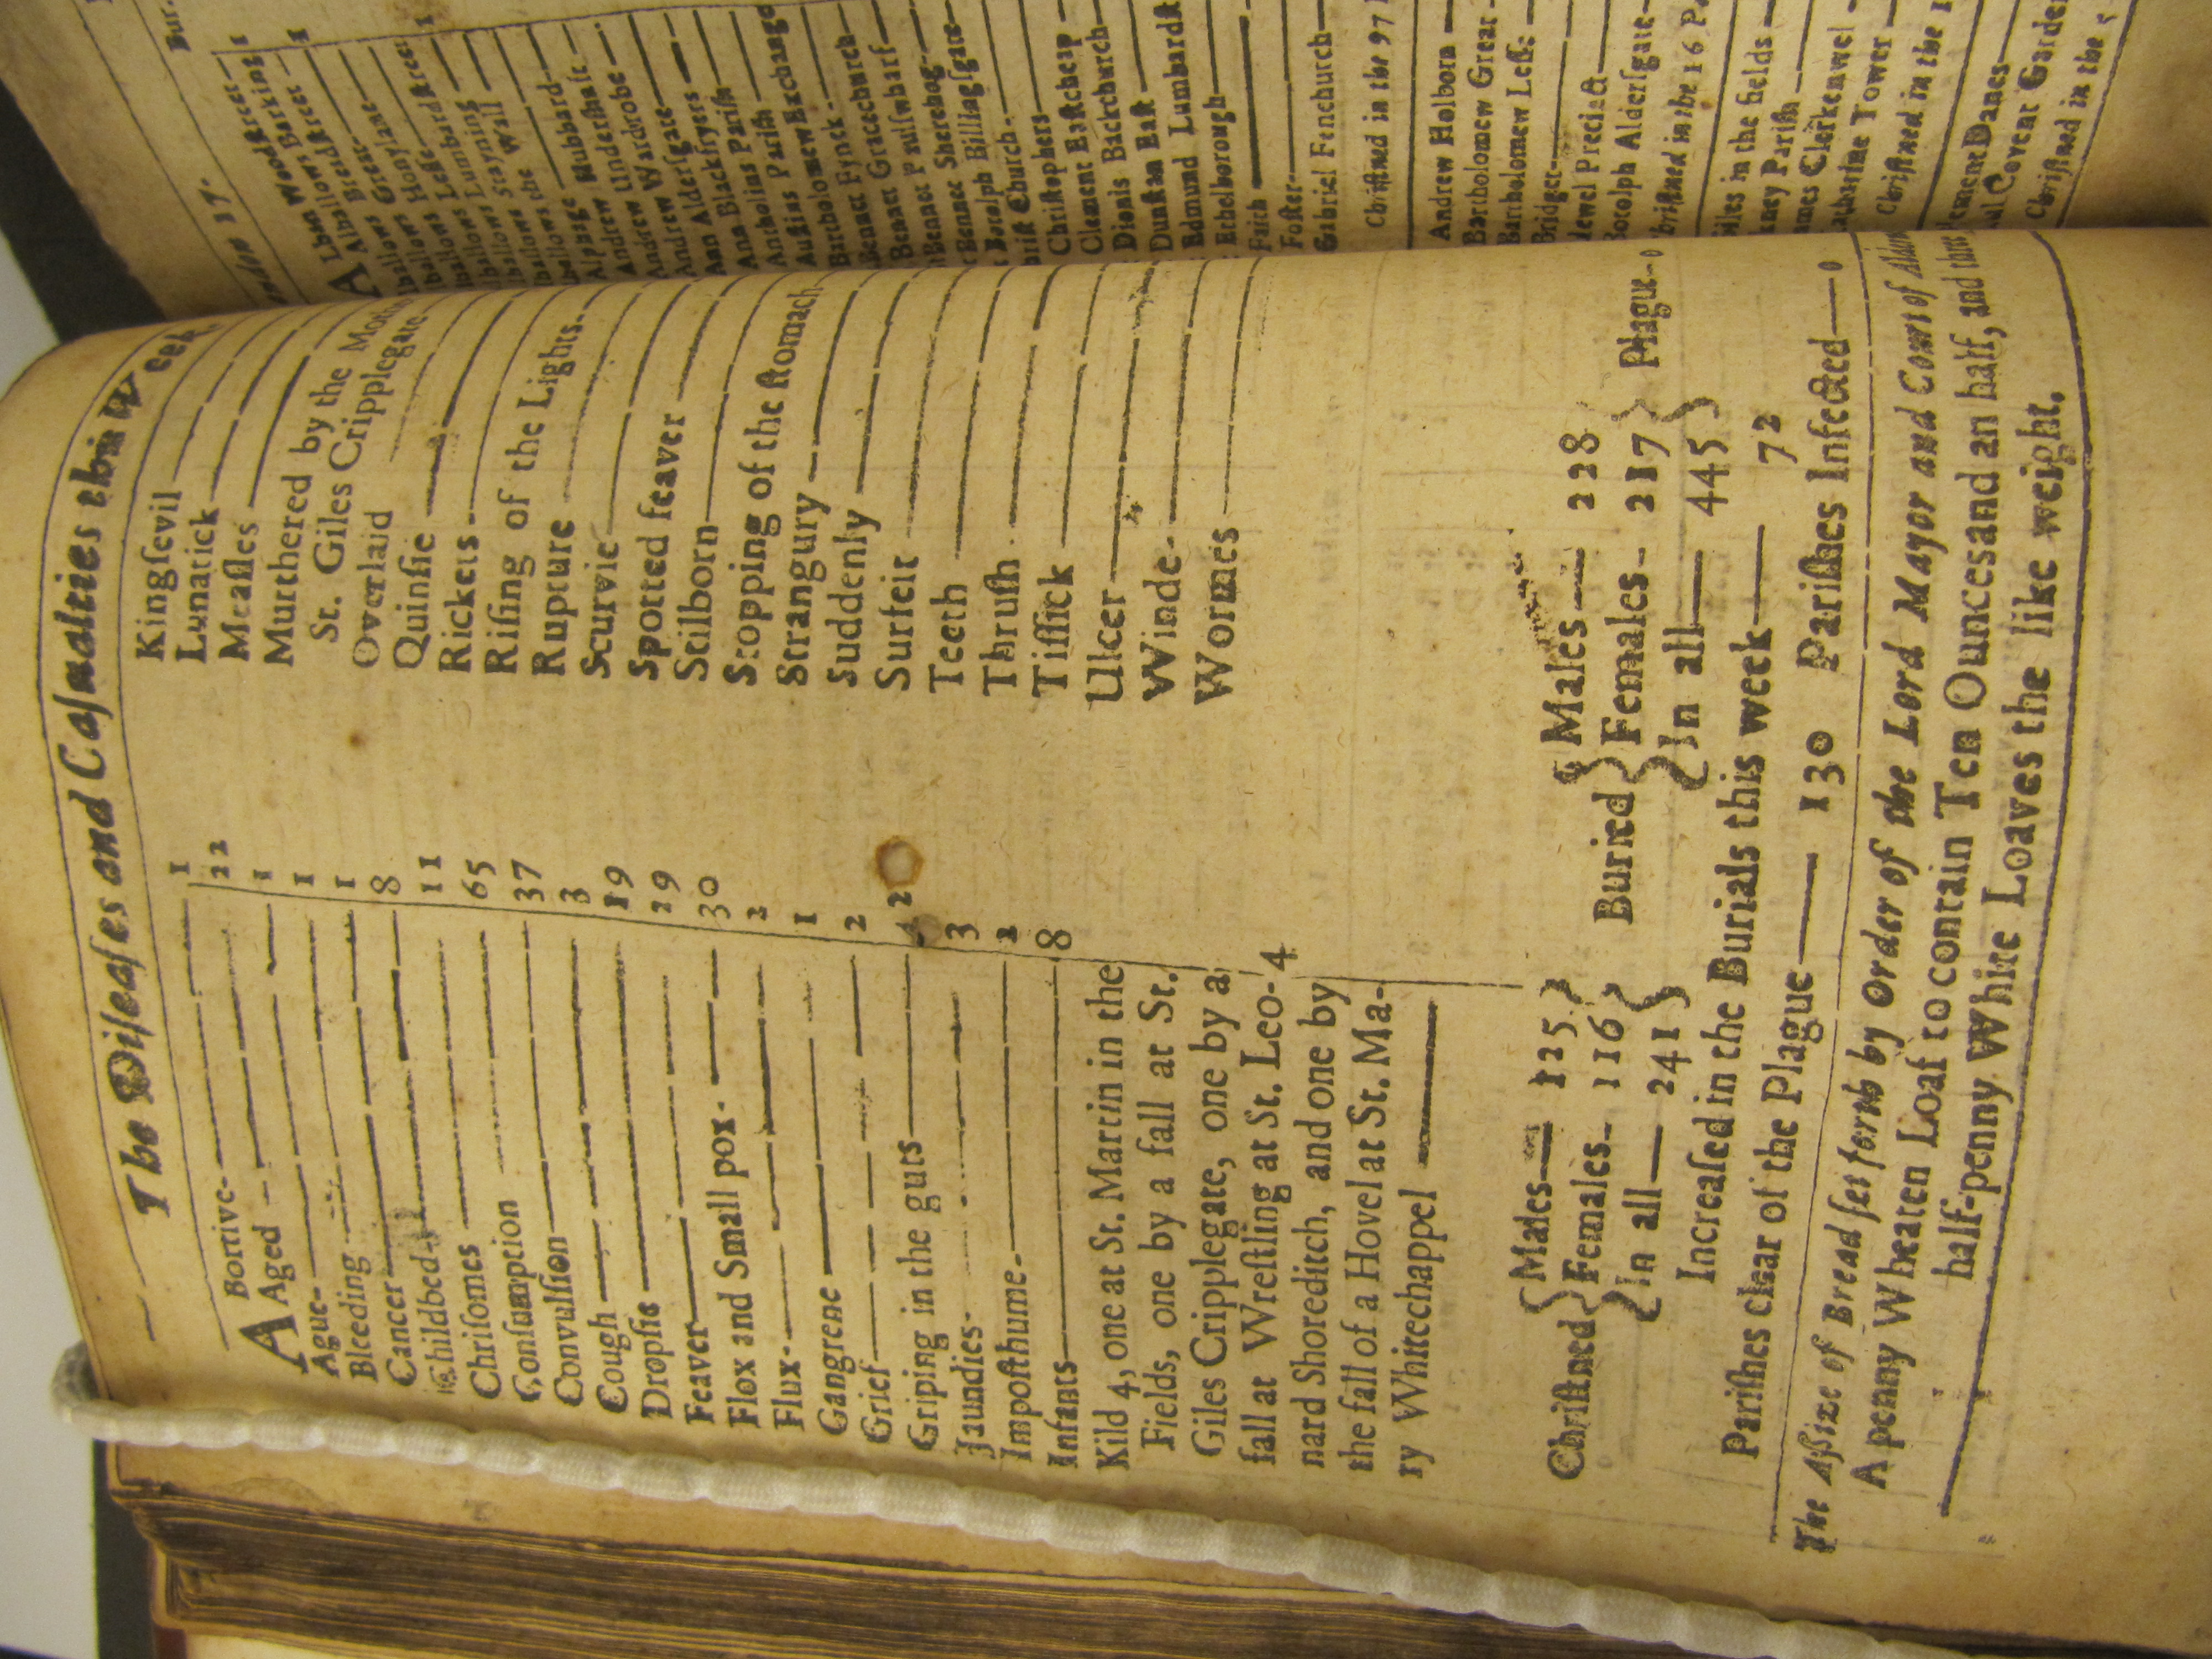 The Diseaſes and Caſualties this Week.
ABortive- 1
Aged 22
Ague- 1
Bleeding 1
Cancer 1
Childbed 8
Chriſomes 11
Conſumption 65
Convulſion 37
Cough 3
Dropſie 19
Feaver 29
Flox and Small pox- 30
Flux- 2
Gangrene 1
Grief 2
Griping in the guts 42
Jaundies- 3
Impoſthume- 2
Infants 8
Kild 4, one at St. Martin in the
Fields, one by a fall at St.
Giles Cripplegate, one by a
fall at Wreſtling at St. Leo- 4
nard Shoreditch, and one by
the fall of a Hovel at St. Ma-
ry Whitechappel
Kingſevil
Lunatick
Meaſles
Murthered by the
St. Giles Cripplegate
Overlaid
Quinſie
Rickets
Riſing of the Lights
Rupture
Scurvie
Spotted feaver
Stilborn
Stopping of the ſtomach
Strangury
Suddenly
Surfeit
Teeth
Thruſh
Tiſſick
Ulcer
Winde
Wormes
Chriſtned { Males 125 Females 116 In all 241 }
Buried { Males 228 Females 217 In all 445 } Plague 0
Increaſed in the Burials this week 72
Pariſhes clear of the Plague 130 Pariſhes Infected 0
The Aſſize of Bread ſet forth by Order of the Lord Mayor and Court of
A penny Wheaten Loaf to contain Ten Ounces and an half, and three
half-penny White Loaves the like weight.
Bur.
17.
Woodſtreet 1
Alhallows Barking 1
Breadſtreet 1
Great
Honylane
Leſſe
Lumbardſtreet 1
Stayning
the Wall
Alphage
Andrew Hubbard
Andrew Underſhaft
Andrew Wardrobe
Ann Alderſgate
Ann Blackfryers
Antholins Pariſh
Auſtins Pariſh
Bartholomew Exchange
Bennet Fynck
Bennet Gracechurch
Bennet Paulſwharf
Bennet Sherehog
Botolph Billingſgate
Chriſt Church
Chriſtophers
Clement Eaſtcheap
Dionis Backchurch
Dunſtan Eaſt
Edmund Lumbardſt
Ethelborough
Faith
Foſter
Gabriel Fenchurch
Chriſtned in the 97
Andrew Holborn
Bartholomew Great
Bartholomew Leſſe
Bridget
Precinct
Botolph Alderſgate
Chriſtned in the 16
Giles in the fields
Pariſh
Clerkenwel
Tower
Chriſtned in the
Danes
Covent Garden
Chriſtned in the 5